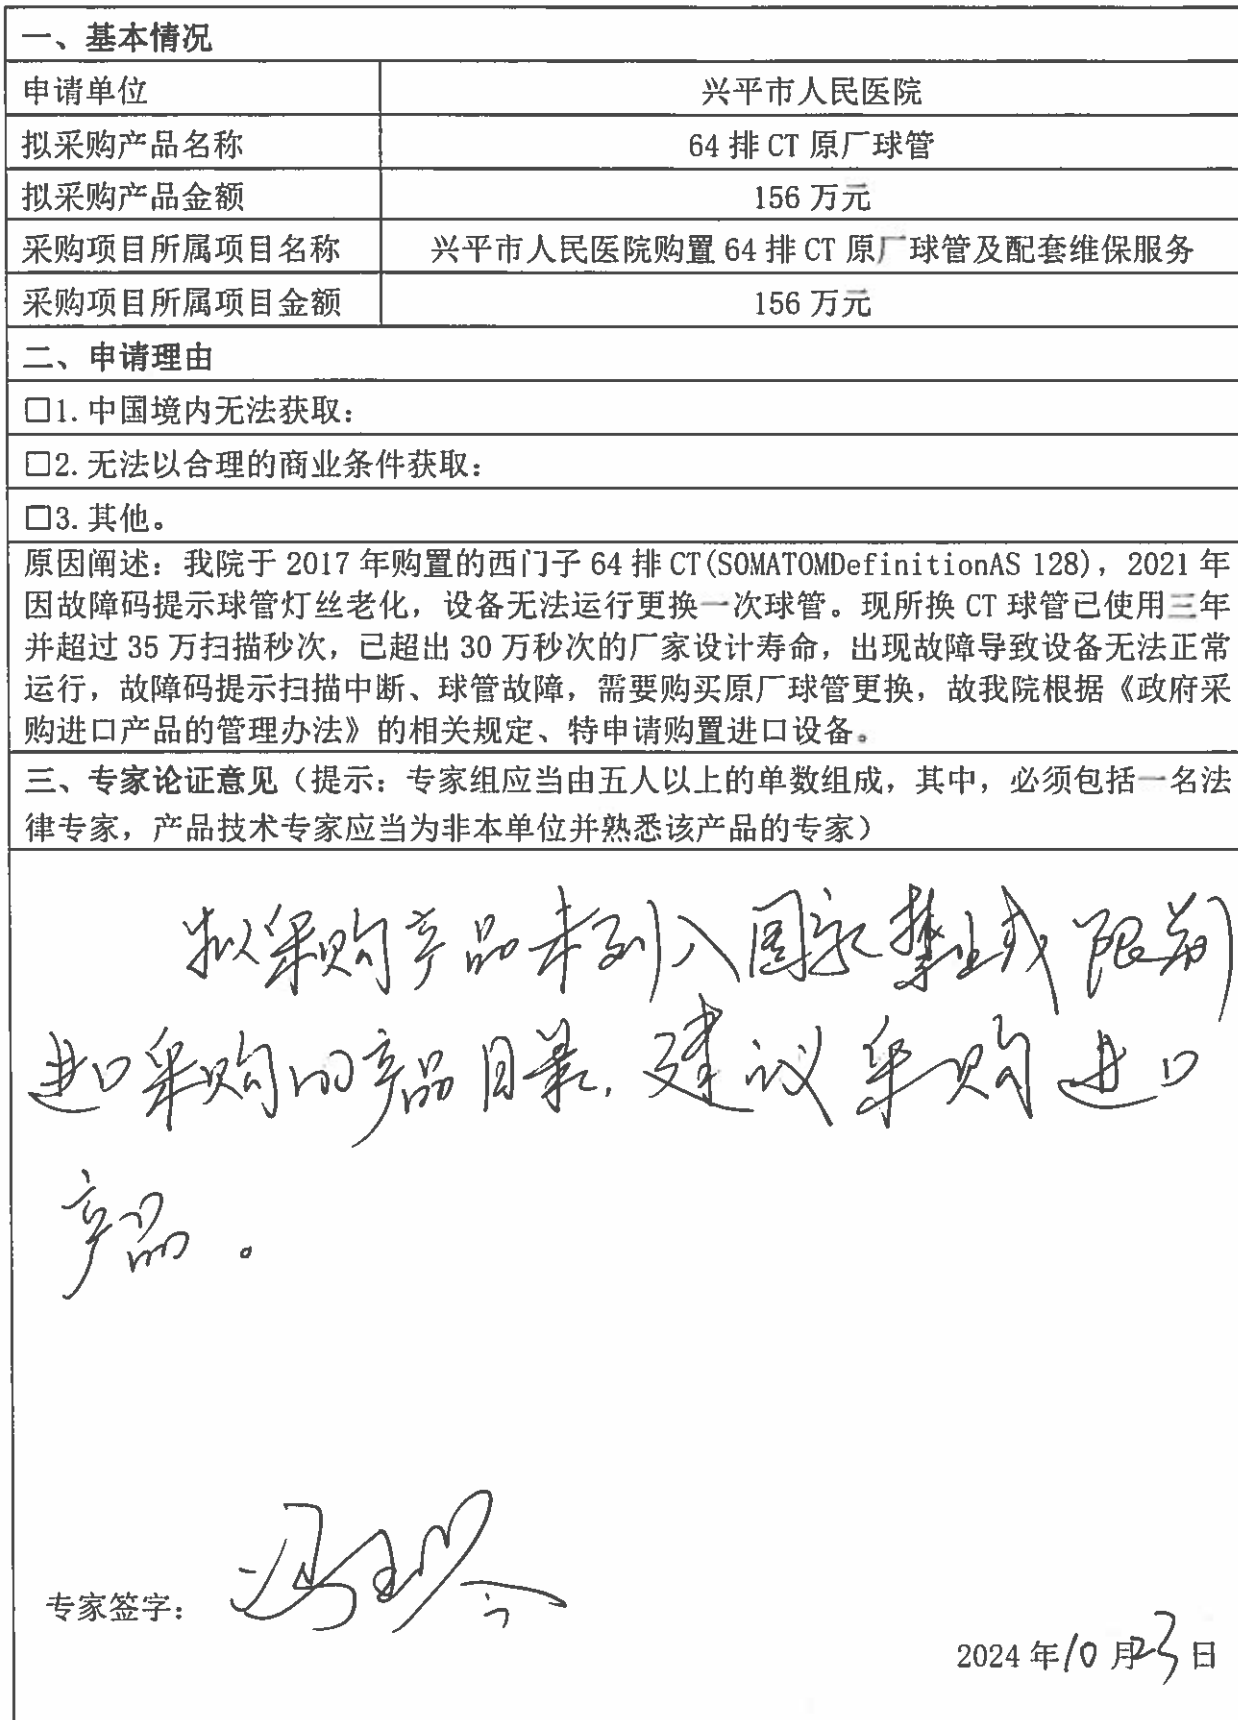 一、基本情况
申请单位 兴平市人民医院
拟采购产品名称 64 排 CT 原厂球管
拟采购产品金额 156 万元
采购项目所属项目名称 兴平市人民医院购置 64 排 CT 原厂球管及配套维保服务
采购项目所属项目金额 156 万元
二、申请理由
□1. 中国境内无法获取：
□2. 无法以合理的商业条件获取：
□3. 其他。
原因阐述：我院于 2017 年购置的西门子 64 排 CT(SOMATOMDefinitionAS 128)，2021 年
因故障码提示球管灯丝老化，设备无法运行更换一次球管。现所换 CT 球管已使用三年
并超过 35 万扫描秒次，已超出 30 万秒次的厂家设计寿命，出现故障导致设备无法正常
运行，故障码提示扫描中断、球管故障，需要购买原厂球管更换，故我院根据《政府采
购进口产品的管理办法》的相关规定、特申请购置进口设备。
三、专家论证意见（提示：专家组应当由五人以上的单数组成，其中，必须包括一名法
律专家，产品技术专家应当为非本单位并熟悉该产品的专家）
拟采购产品未列入国家禁止或限制
进口采购的产品目录，建议采购进口
产品。
专家签字：
2024 年 10 月 23 日